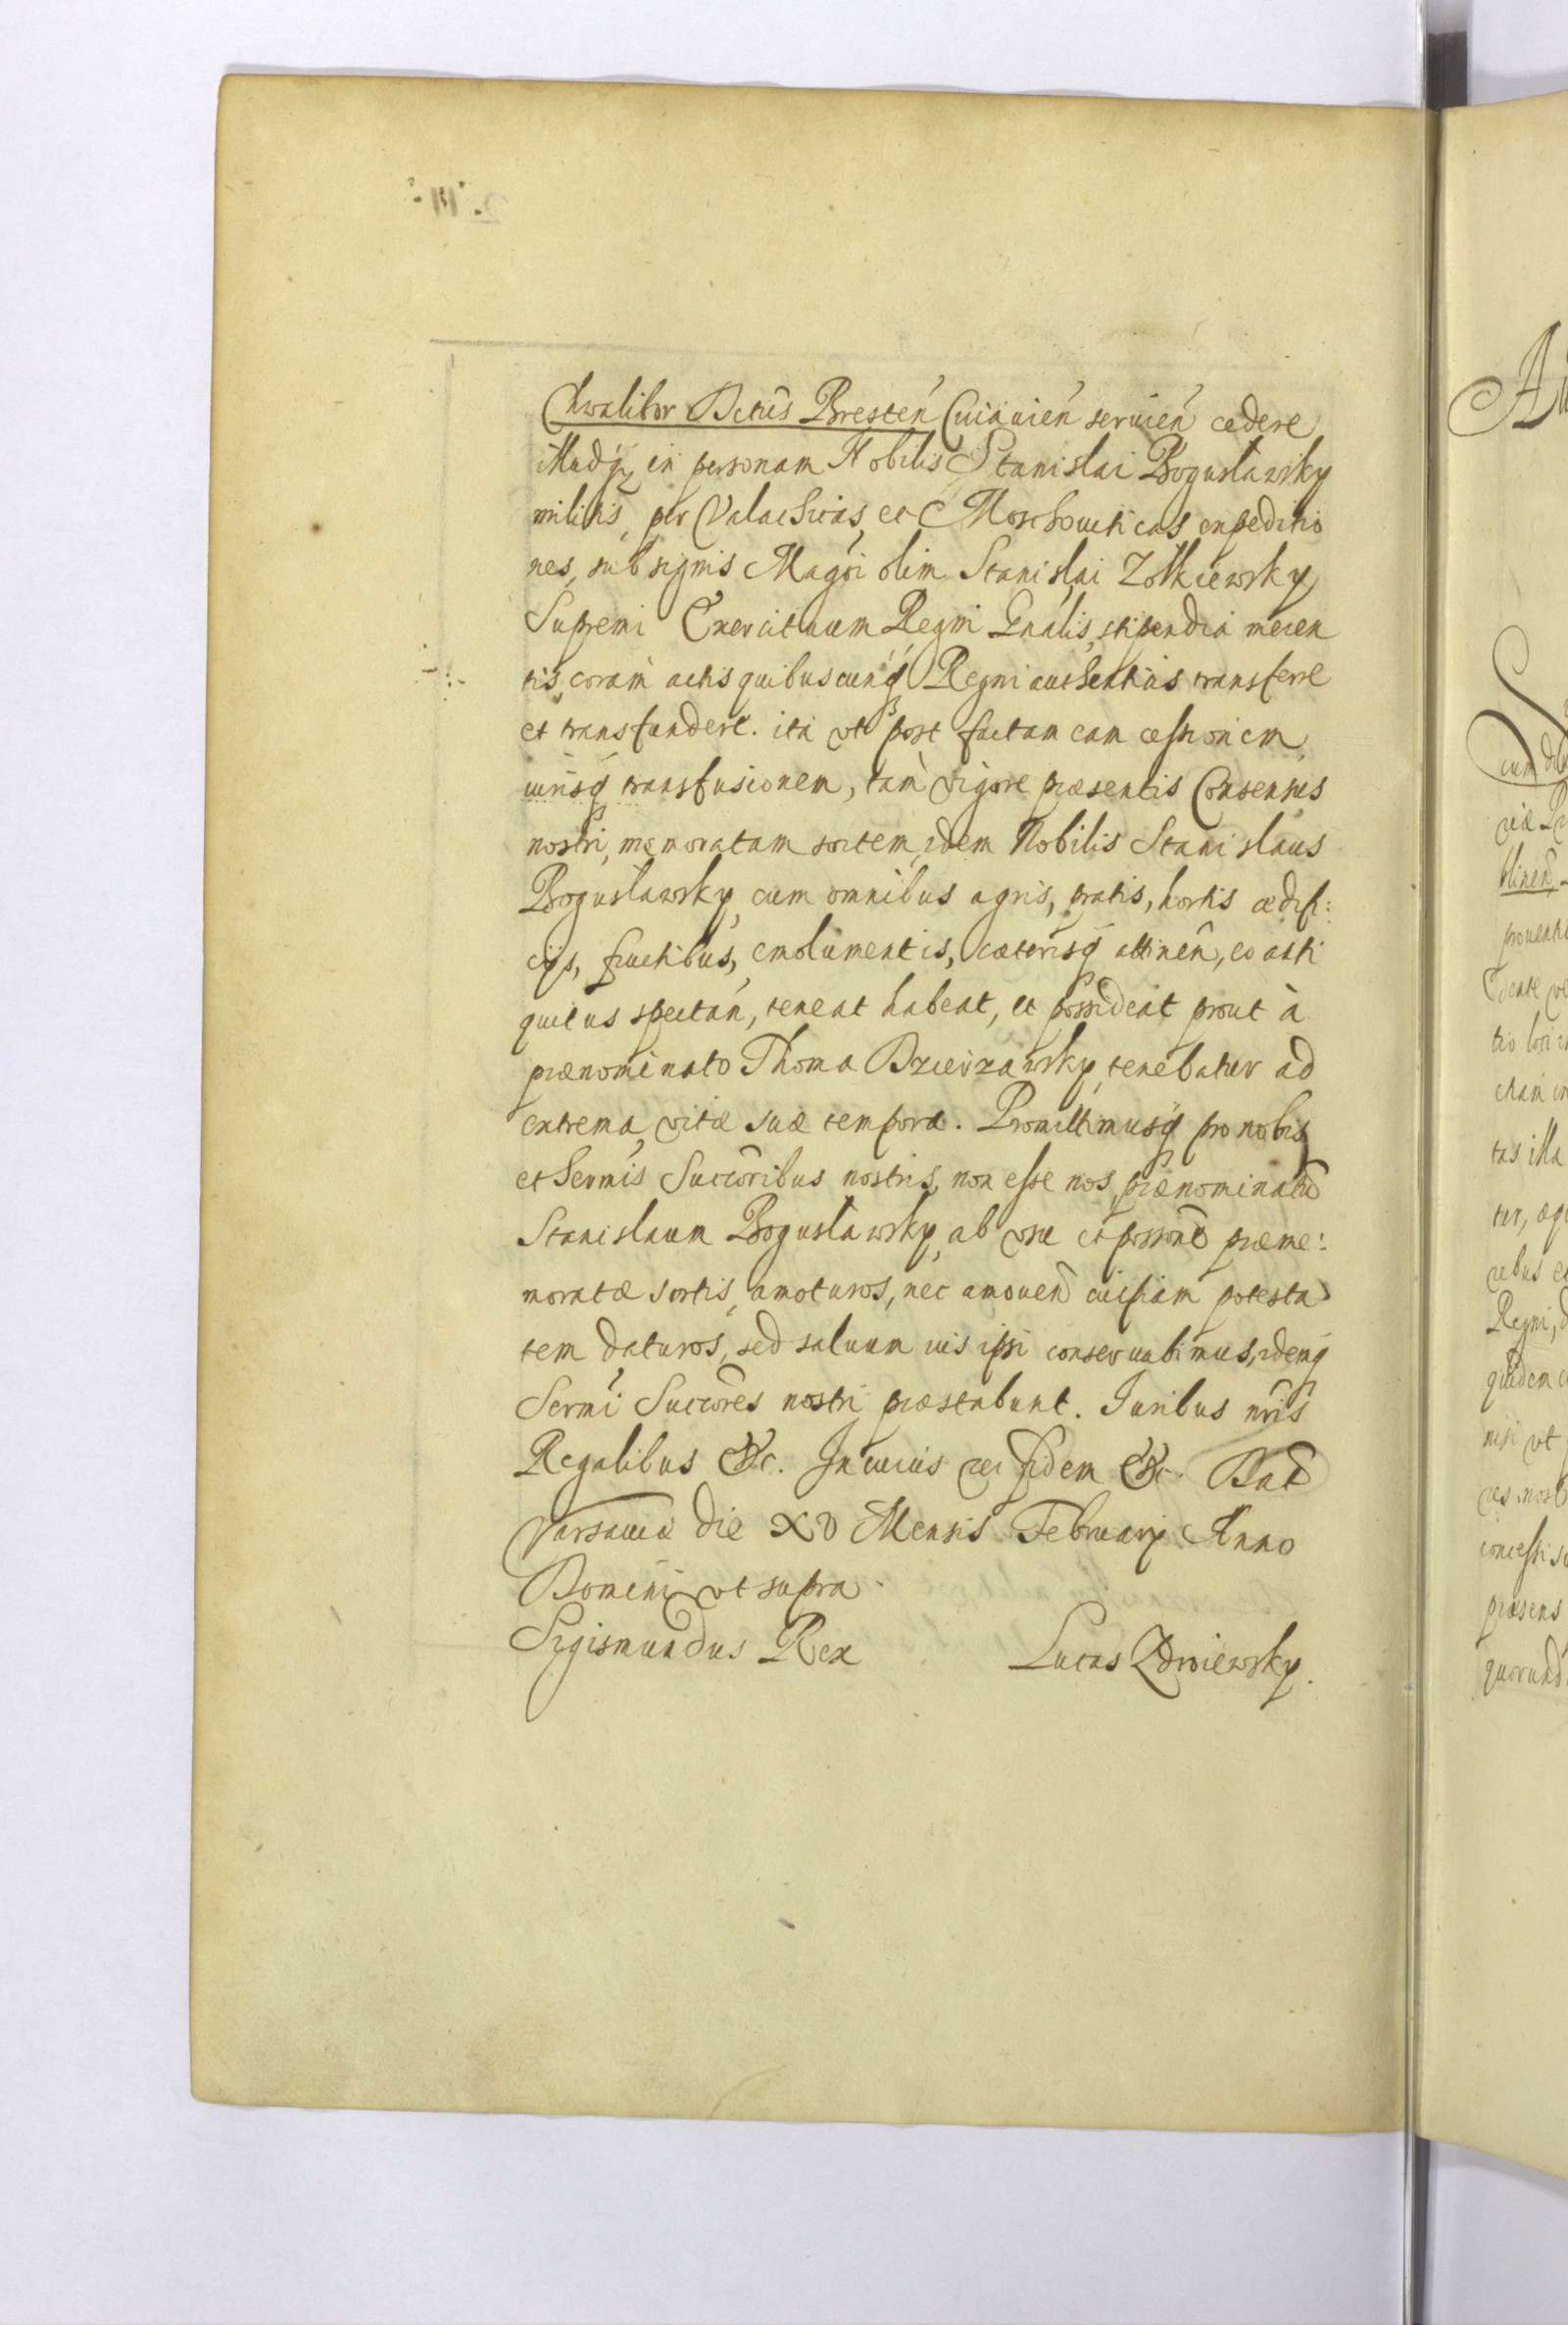 Chwalibor Dctûs Bresteń Cuiauień seruień cedere
illudq́ȝ in personam Nobilis Stanislai Boguslawsky
militis, per Valachicas, et Moschouiticas expeditio
nes, sub signis Magći olim Stanislai Zolkiewsky
Supremi Exercituum Regni Gnâlis, stipendia meren
tis, coram actis quibuscunq́ȝ Regni authenticis transferre
et transfundere. ita vt post factam eam cessionem,
iurisq́ȝ transfusionem, tam vigore præsentis Consensus
nostri, memoratam sortem, idem Nobilis Stanislaus
Boguslawsky, cum omnibus agris, pratis, hortis ædifi:
cijs, fructibus, emolumentis, cæterisq́ȝ attineñ, eo anti
quitus spectań, teneat habeat, et possideat prout à
prænominato Thoma Dzierzawsky, tenebatur ad
extrema, vitæ suæ tempora. Promittimusq́ȝ pro nobis
et Sermis Succoribus nostris, non esse nos, prænominatũ
Stanislaum Boguslawsky, ab vsu et possone præme:
moratæ sortis, amoturos, nec amouend cuipiam potesta
tem daturos, sed saluum ius ipsi conseruabimus, idemq́
Sermi Succores nostri præstabunt. Iuribus nris
Regalibus &c. In cuius rei fidem &c. Dat
Varsauiæ die XV Mensis Februarij Anno
Domini vt supra.
Sigismundus Rex Lucas Zdroiewsky.
Au
cum
riæ
blinen
prouent
dente ve
tio lori
etiam in
tas illa
tur, æq
rebus e
Regni,
quidem
nisi vt
res nost
concessi
præsens
quorund